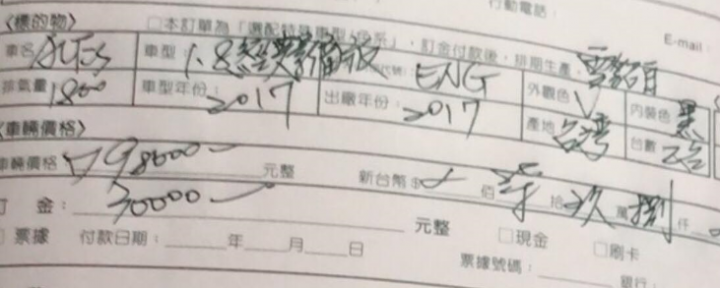 行動電話：
〈標的物〉 □本訂單為「選配特是車型/役系」，訂金付款後，排期生產， E-mail
車名 ALTIS 車型 1.8經典影音版 ENG 外觀色 內裝色 黑
排氣量 1800 車型年份：2017 出廠年份：2017 產地 台灣 台數 乙台
〈車輛價格〉
車輛價格 798000 元整 新台幣$ 佰 拾 玖 萬 捌 仟
訂 金： 30000 元整 □現金 □刷卡
票據 付款日期：____年____月____日 票據號碼：____ 銀行：